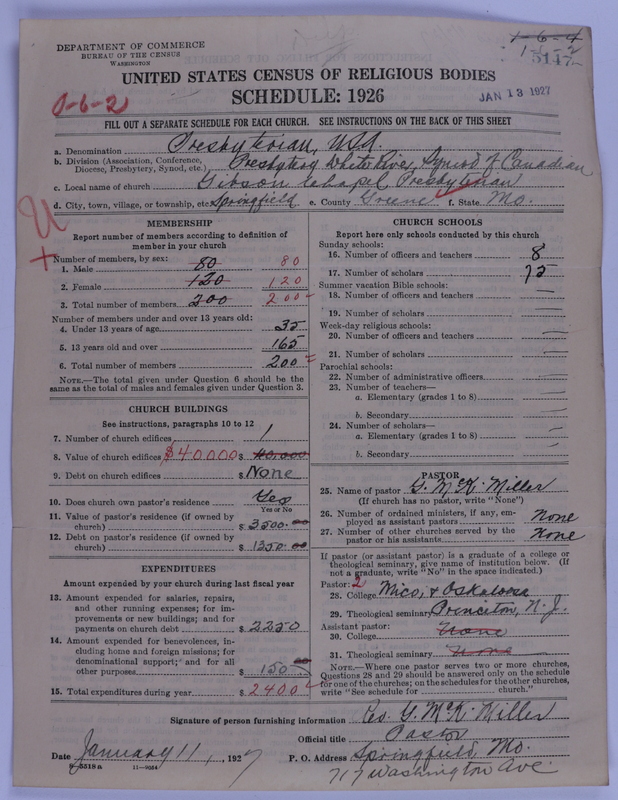 DEPARTMENT OF COMMERCE
BUREAU OF THE CENSUS
WASHINGTON
1-6-4
1-6-2
5147
JAN 13 1927
1-6-2
UNITED STATES CENSUS OF RELIGIOUS BODIES
SCHEDULE: 1926
FILL OUT A SEPARATE SCHEDULE FOR EACH CHURCH. SEE INSTRUCTIONS ON THE BACK OF THIS SHEET
a. Denomination Presbyterian, USA.
b. Division (Association, Conference, Diocese, Presbytery, Synod, etc.) Presbytery White River, Synod of Canadian
c. Local name of church Gibson Chapel Presbyterian
d. City, town, village, or township, etc. Springfield e. County Greene f. State Mo.
MEMBERSHIP
Report number of members according to definition of
member in your church
Number of members, by sex:
1. Male 80 80
2. Female 120 120
3. Total number of members 200 200
Number of members under and over 13 years old:
4. Under 13 years of age 35
5. 13 years old and over 165
6. Total number of members 200
NOTE.—The total given under Question 6 should be the
same as the total of males and females given under Question 3.
CHURCH BUILDINGS
See instructions, paragraphs 10 to 12
7. Number of church edifices 1
8. Value of church edifices $40000 $ 40,000
9. Debt on church edifices $ None
10. Does church own pastor's residence Yes
Yes or No
11. Value of pastor's residence (if owned by
church) $ 3500.00
12. Debt on pastor's residence (if owned by
church) $ 1350.00
EXPENDITURES
Amount expended by your church during last fiscal year
13. Amount expended for salaries, repairs,
and other running expenses; for im-
provements or new buildings; and for
payments on church debt $ 2250
14. Amount expended for benevolences, in-
cluding home and foreign missions; for
denominational support; and for all
other purposes $ 150 00
15. Total expenditures during year $ 2400
CHURCH SCHOOLS
Report here only schools conducted by this church
Sunday schools:
16. Number of officers and teachers 8
17. Number of scholars 75
Summer vacation Bible schools:
18. Number of officers and teachers
19. Number of scholars
Week-day religious schools:
20. Number of officers and teachers
21. Number of scholars
Parochial schools:
22. Number of administrative officers
23. Number of teachers—
a. Elementary (grades 1 to 8)
b. Secondary
24. Number of scholars—
a. Elementary (grades 1 to 8)
b. Secondary
PASTOR
25. Name of pastor G. McK. Miller
(If church has no pastor, write "None")
26. Number of ordained ministers, if any, em-
ployed as assistant pastors None
27. Number of other churches served by the
pastor or his assistants None
If pastor (or assistant pastor) is a graduate of a college or
theological seminary, give name of institution below. (If
not a graduate, write "No" in the space indicated.)
Pastor: 2
28. College Mico, & Oskaloosa
29. Theological seminary Princeton, N. J.
Assistant pastor:
30. College None
31. Theological seminary None
NOTE.—Where one pastor serves two or more churches,
Questions 28 and 29 should be answered only on the schedule
for one of the churches; on the schedules for the other churches,
write "See schedule for church."
Signature of person furnishing information Geo. G. McK. Miller
Official title Pastor
Date January 11, 1927 P. O. Address Springfield, Mo.
8-5518 a 11-9054 717 Washington Ave.